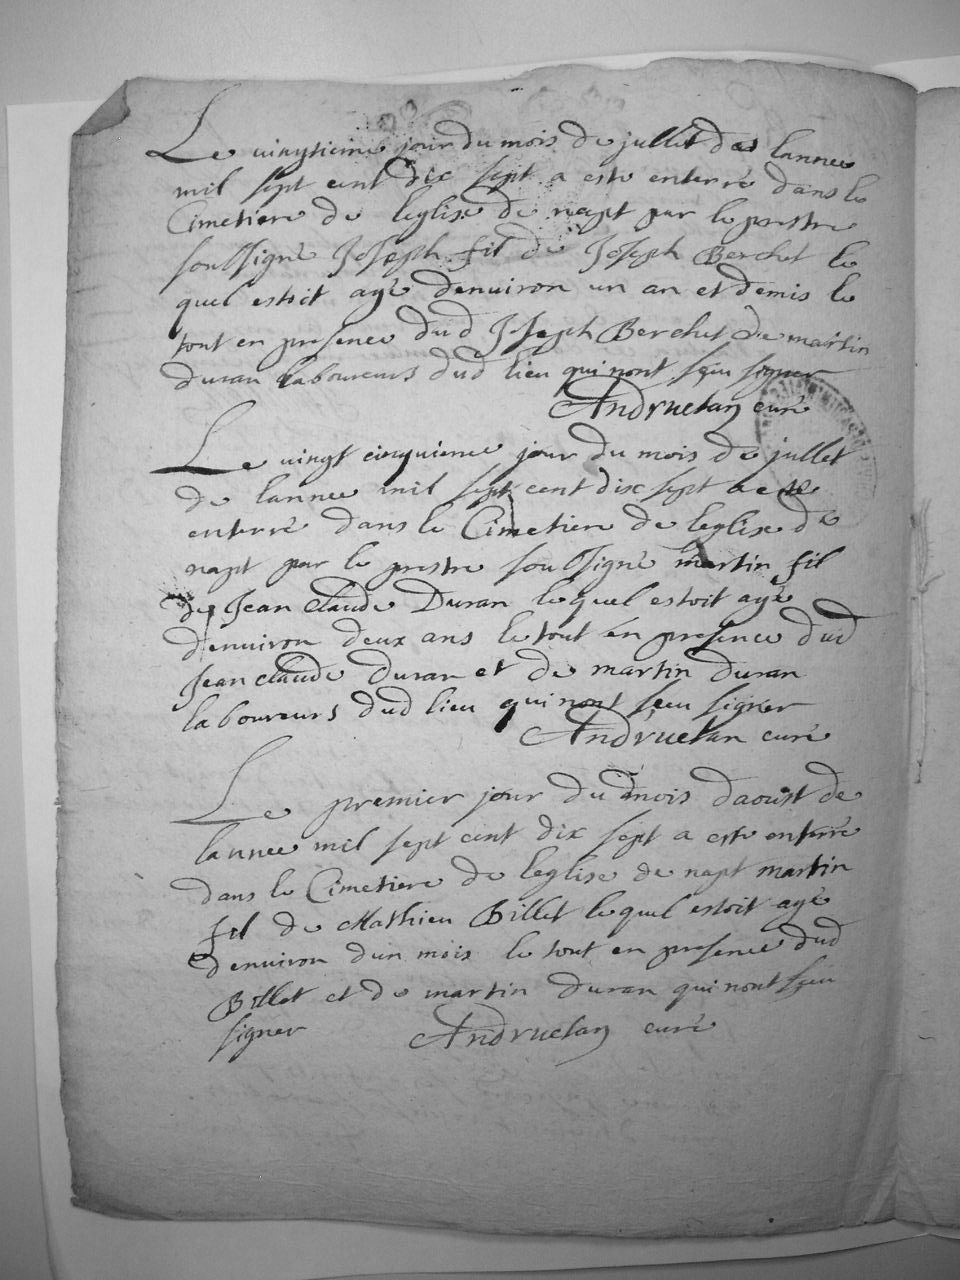 Le vingtieme jour du mois de jullet de lannee
mil sept cent dix sept a este enterré dans le
Cimetiere de leglise de napt par le prestre
soussigné Joseph fil de Joseph Berchet le
quel estoit agé denuiron un an et demis le
tout en presence dud Joseph Berchet de martin
duran laboureurs dud lieu qui nont sceu signer
Andruetan curé
Le vingt cinquieme jour du mois de jullet
de lannee mil sept cent dix sept a este
enterré dans le Cimetiere de leglise de
napt par le prestre soussigné martin fil
de Jean claude Duran lequel estoit agé
denuiron deux ans le tout en presence dud
Jean claude duran et de martin duran
laboureurs dud lieu qui nont sceu signer
Andruetan curé
Le premier jour du mois daoust de
lannee mil sept cent dix sept a este enterré
dans le Cimetiere de leglise de napt martin
fil de Mathieu Billet lequel estoit agé
denuiron dun mois le tout en presence dud
Billet et de martin duran qui nont sceu
signer Andruetan curé